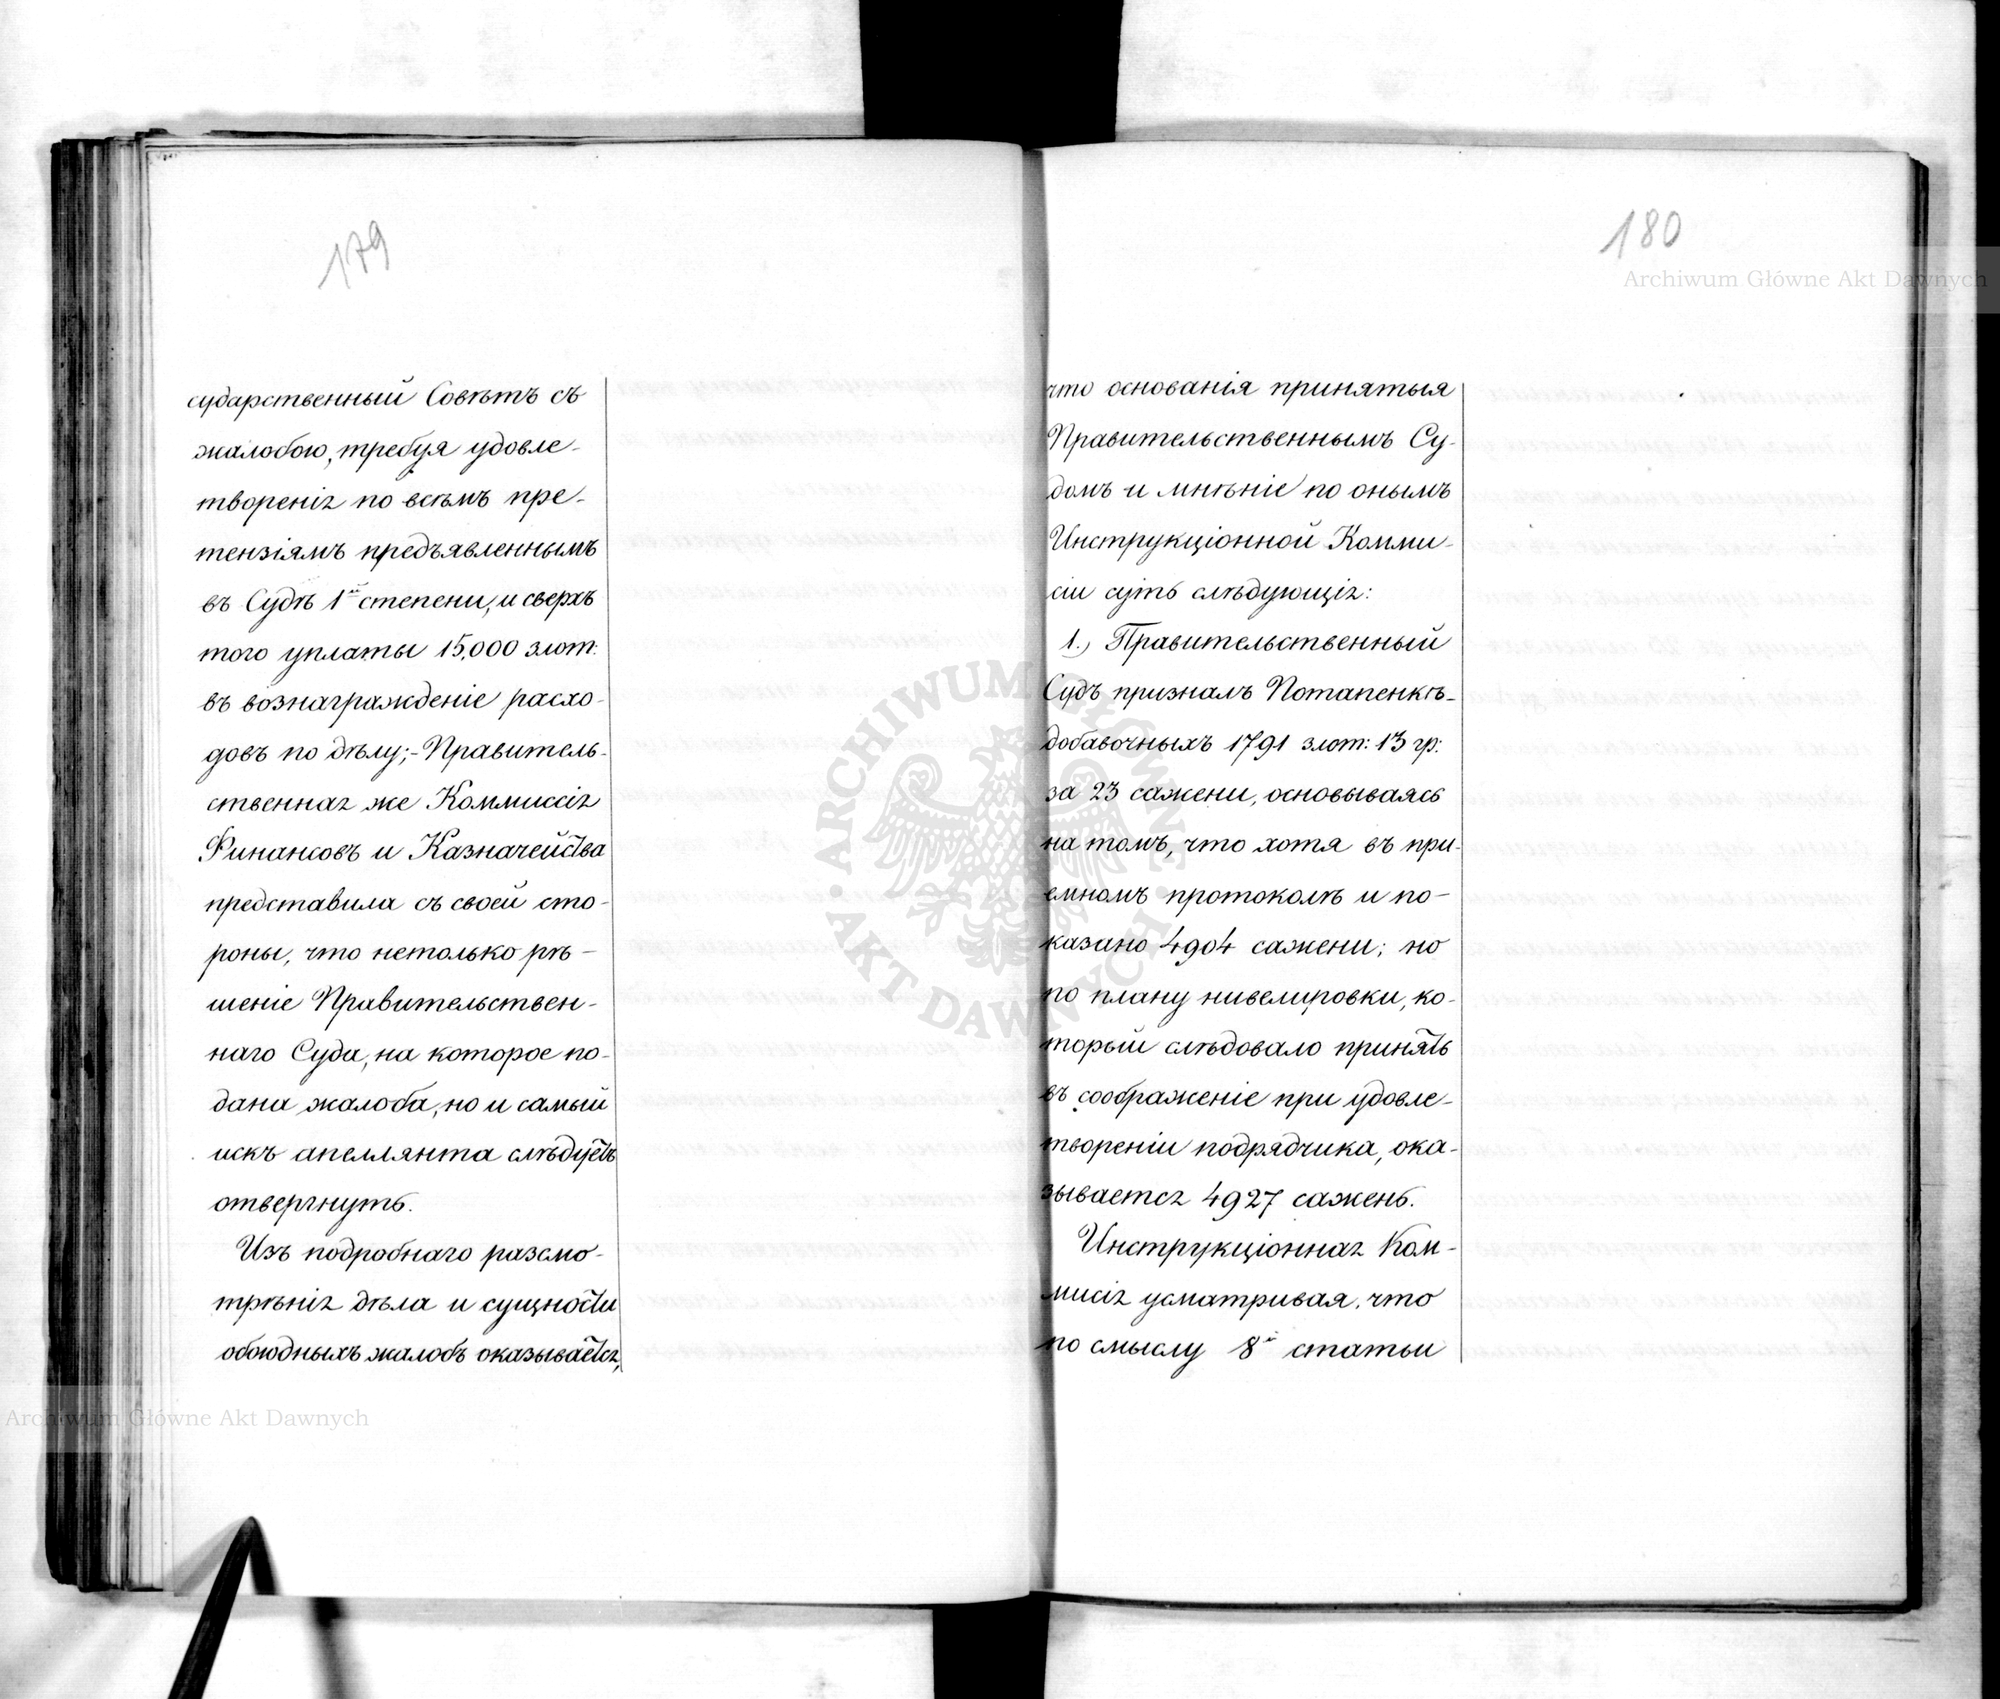 179
сударственный Совѣтъ съ
жалобою, требуя удовле-
творенія по всѣмъ пре-
тензіямъ предъявленнымъ
въ Судѣ 1й степени, и сверхъ
того уплаты 15,000 злот:
въ вознагражденіе расхо-
довъ по дѣлу;- Правитель-
ственная же Коммиссія
Финансовъ и Казначейства
представила съ своей сто-
роны, что нетолько рѣ-
шеніе Правительствен-
наго Суда, на которое по-
дана жалоба, но и самый
искъ апеллянта слѣдуетъ
отвергнуть.
Изъ подробнаго разсмо-
трѣнія дѣла и сущности
обоюдныхъ жалобъ оказывается,
180
что основанія принятыя
Правительственнымъ Су-
домъ и мнѣніе по онымъ
Инструкціонной Комми-
сіи суть слѣдующія:
1.) Правительственный
Судъ призналъ Потапенкѣ-
добавочныхъ 1791 злот: 13 гр:
за 23 сажени, основываясь
на томъ, что хотя въ при-
емномъ протоколѣ и по-
казано 4904 сажени; но
по плану нивелировки, ко-
торый слѣдовало принять
въ соображеніе при удовле-
твореніи подрядчика, ока-
зывается 4927 сажень.
Инструкціонная Ком-
мисія усматривая, что
по смыслу 8й статьи
Archiwum Główne Akt Dawnych
Archiwum Główne Akt Dawnych
ARCHIWUM GŁÓWNE AKT DAWNYCH